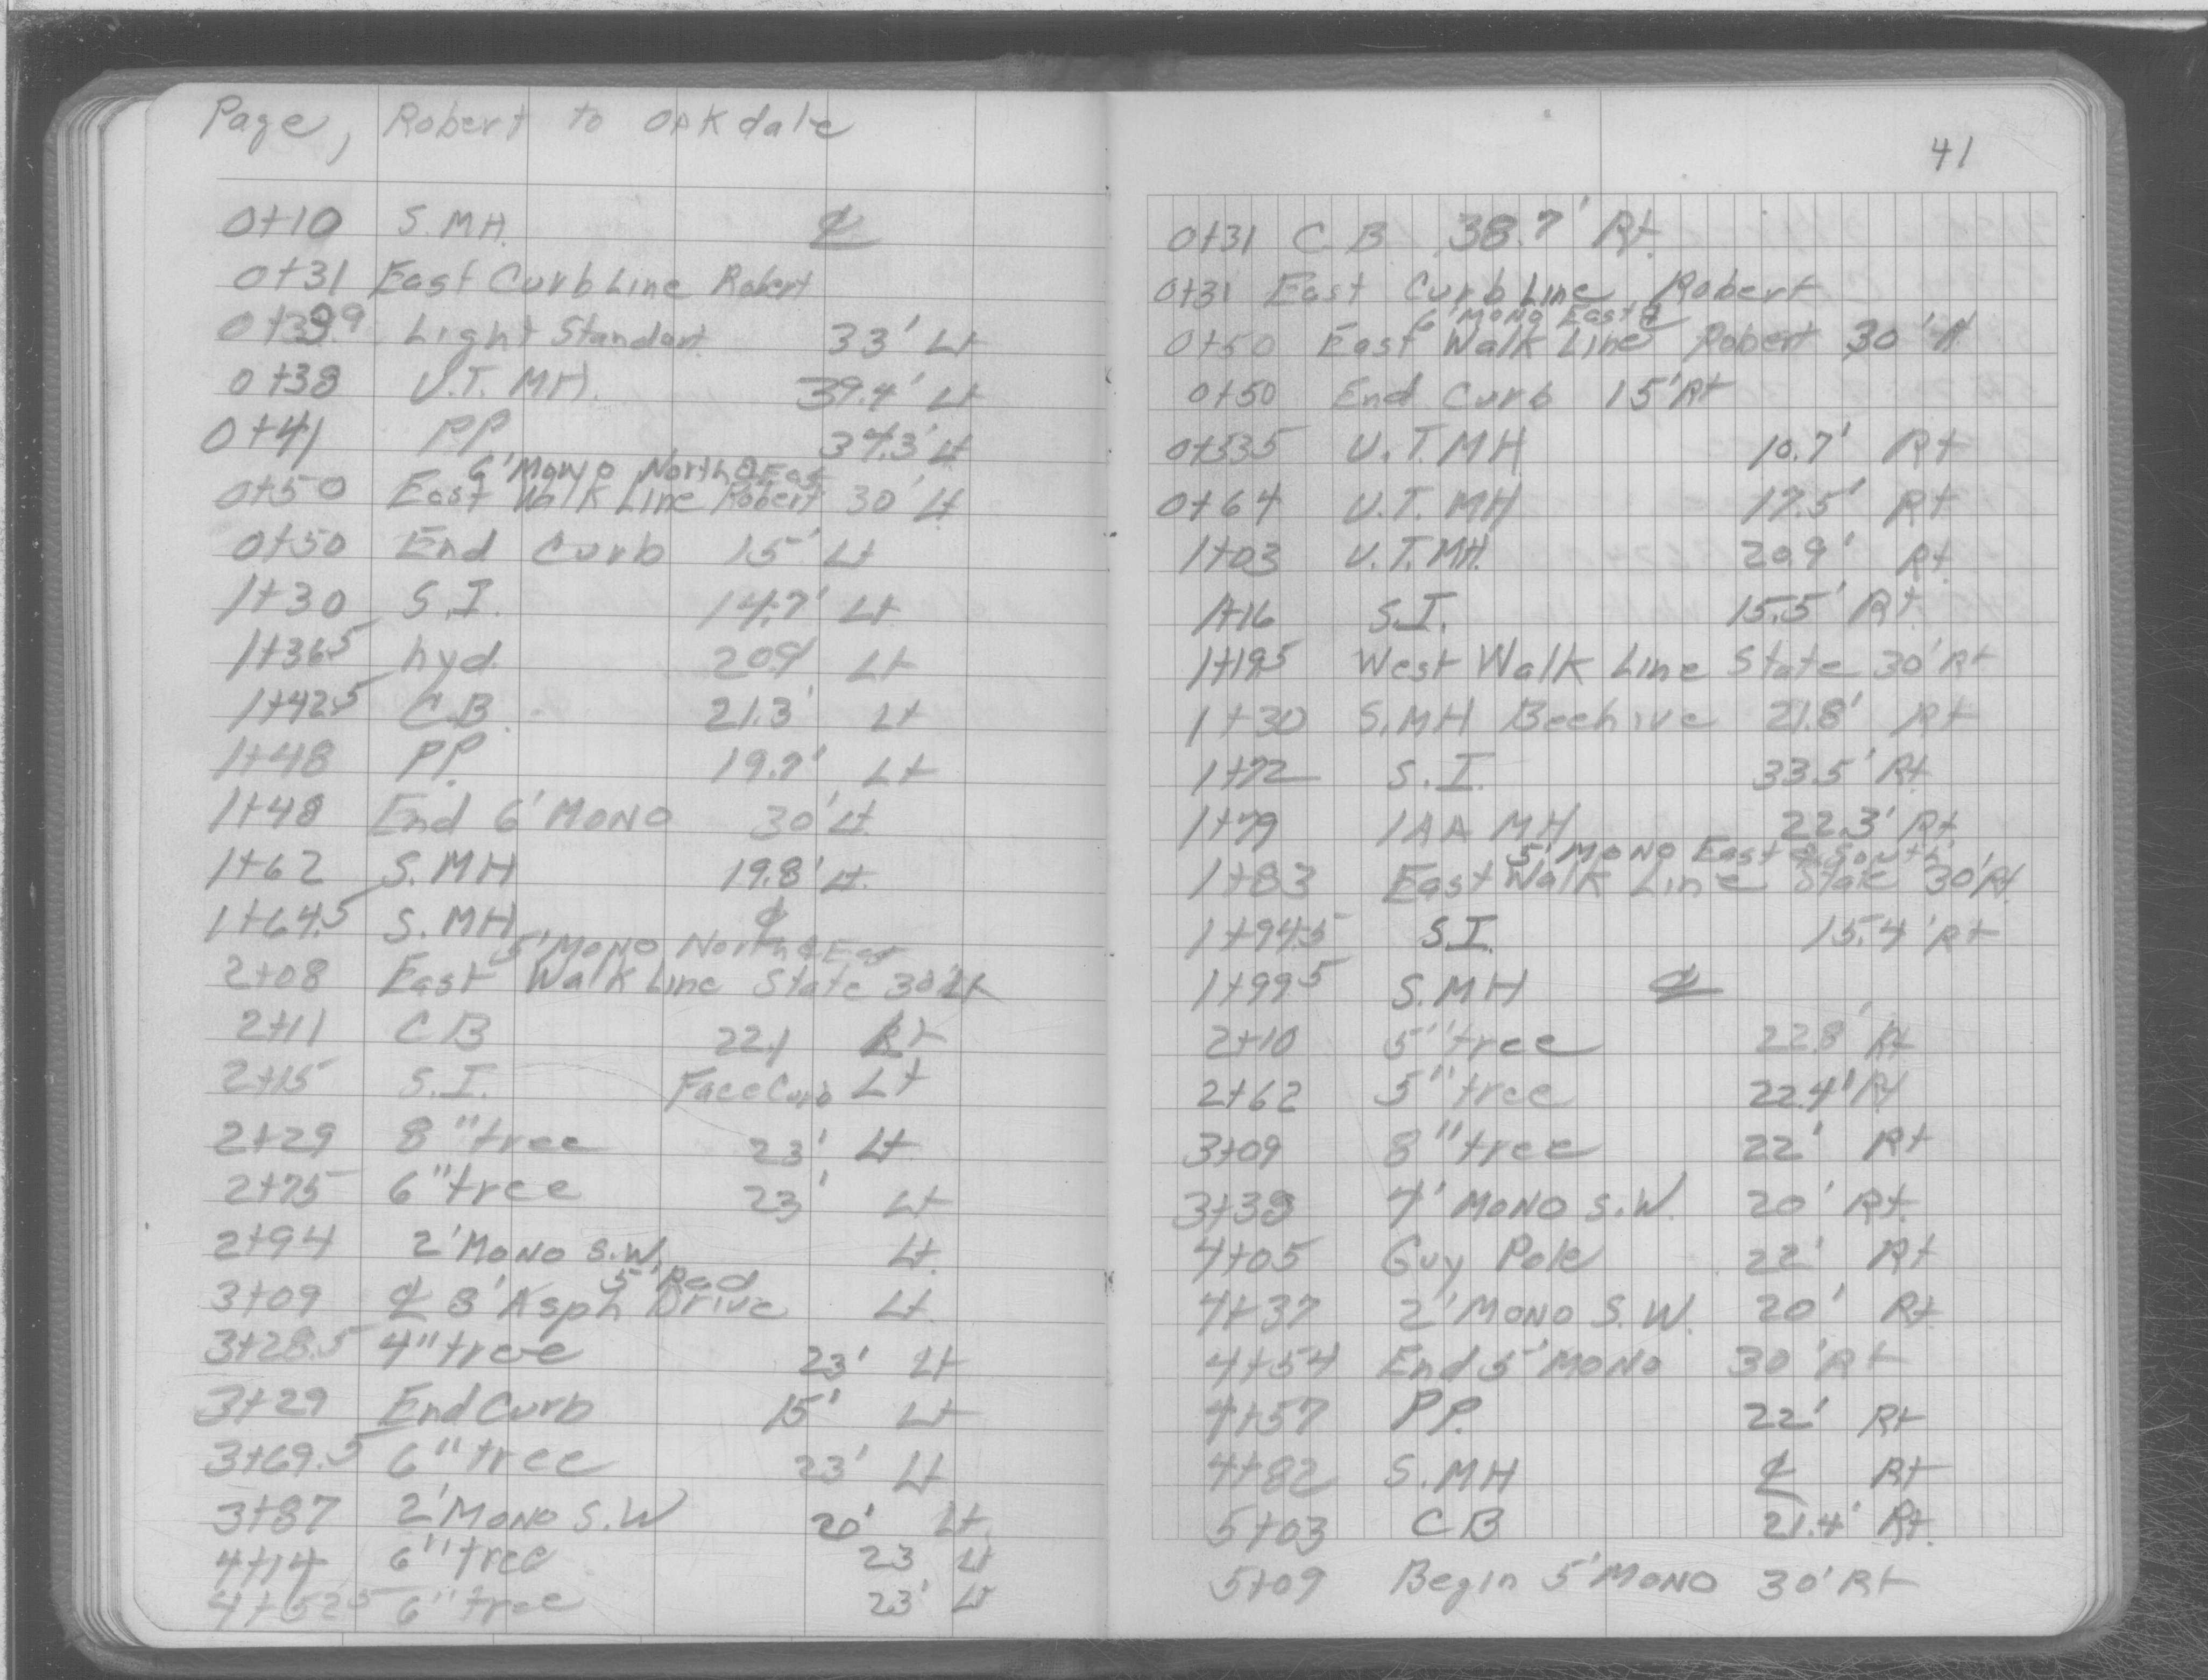 Page, Robert to Oakdale
0+10 S.MH. ℄
0+31 East Curb Line Robert
Light Standart 33' Lt
0+38 U.T. MH. 39.4' Lt
0+41 PP 37.3' Lt
6' Mono North & East
0+50 East Walk Line Robert 30' Lt
0+50 End Curb 15' Lt
1+30 S.I. 14.7' Lt
1+36.5 hyd. 20.9' Lt
1+42.5 C.B. 21.3' Lt
1+48 PP. 19.7' Lt
1+48 End 6' MONO 30' Lt.
1+62 S.MH 19.8' Lt.
1+64.5 S.MH ℄
5' Mono North & East
2+08 East Walk Line State 30' Lt
2+11 CB 22.1 Rt
2+15 S.I. Face Curb Lt
2+29 8" tree 23' Lt
2+75 6" tree 23' Lt
2+94 2' Mono S.W. Lt.
5' Rad
3+09 ℄ 8' Asph Drive Lt
3+28.5 4" tree 23' Lt
3+29 End Curb 15' Lt
3+69.5 6" tree 23' Lt
3+87 2' Mono S.W 20' Lt.
4+14 6" tree 23 Lt
4+52.5 6" tree 23' Lt
41
0+31 C.B. 38.7' Rt.
0+31 East Curb Line Robert
6' Mono East
0+50 East Walk Line Robert 30' Rt
0+50 End Curb 15' Rt
0+53.5 U.T. MH 10.7' Rt
0+64 U.T. MH 17.5' Rt
1+03 U.T. MH. 20.9' Rt.
1+16 S.I. 15.5' Rt.
1+19.5 West Walk Line State 30' Rt
1+30 S.MH Beehive 21.8' Rt
1+72 S.I. 33.5' Rt.
1+79 1AA MH 22.3' Rt.
5' Mono East & South
1+83 East Walk Line State 30' Rt.
1+94.5 S.I. 15.4' Rt
1+99.5 S.MH ℄
2+10 5" tree 22.8' Rt
2+62 5" tree 22.4' Rt
3+09 8" tree 22' Rt
3+38 4' Mono S.W. 20' Rt.
4+05 Guy Pole 22' Rt
4+37 2' Mono S.W. 20' Rt.
4+54 End 5' Mono 30' Rt
4+57 PP. 22' Rt
4+82 S.MH ℄ Rt
5+03 CB 21.4' Rt.
5+09 Begin 5' Mono 30' Rt